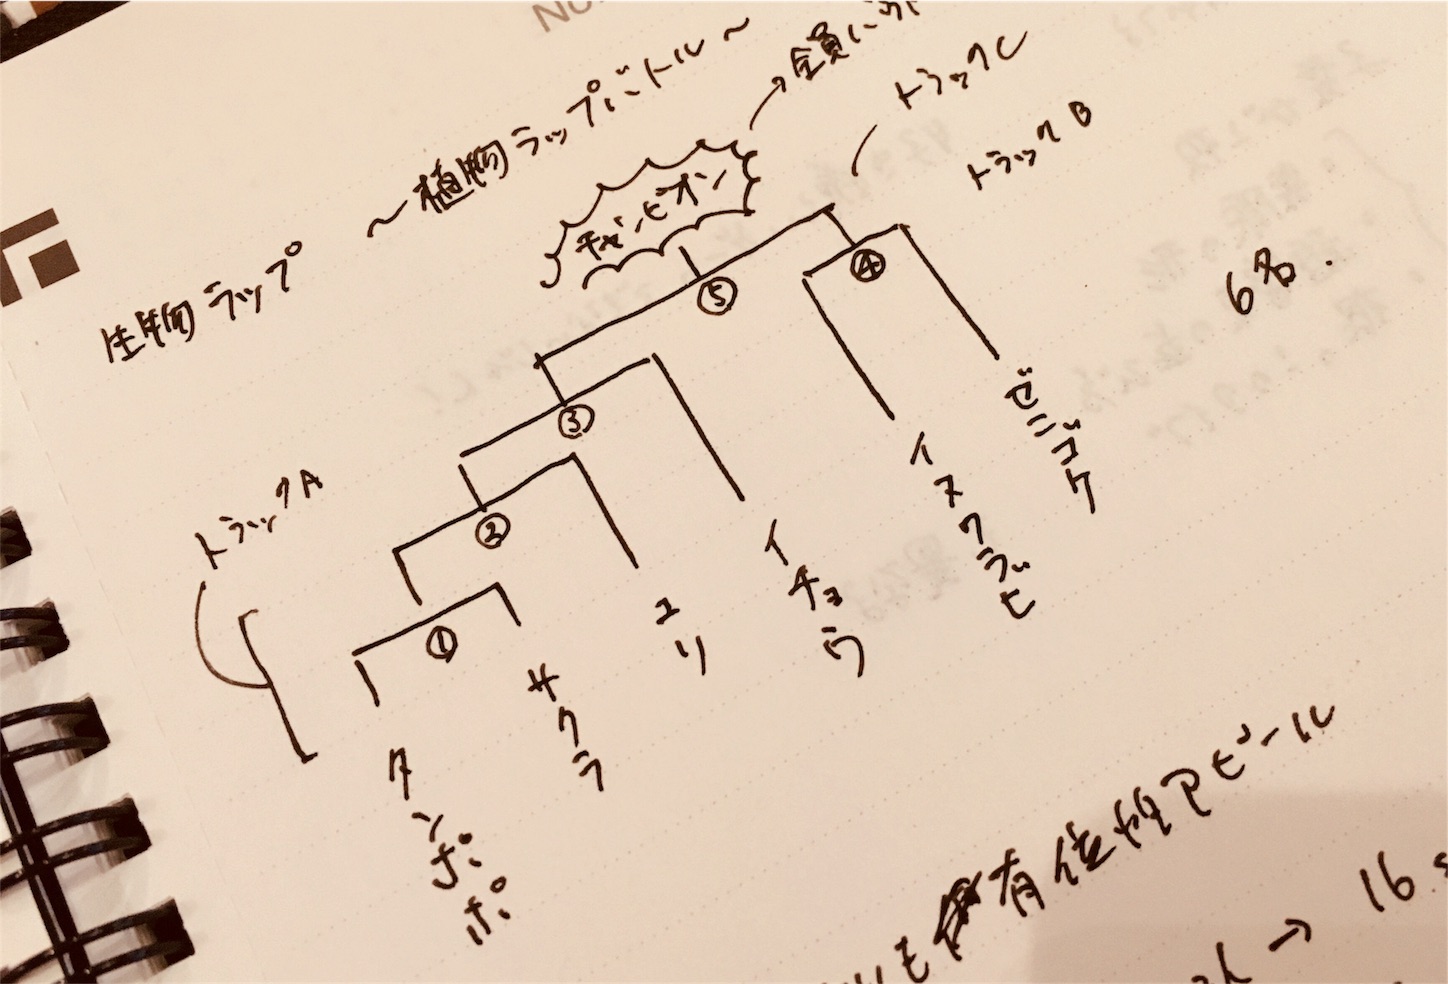 生物ラップ 〜植物ラップバトル〜
→全員に
トラックC
トラックB
チャンピオン
6名.
⑤
④
③
②
①
トラックA
タンポポ
サクラ
ユリ
イチョウ
イヌワラビ
ゼニゴケ
有位性アピール
→ 16